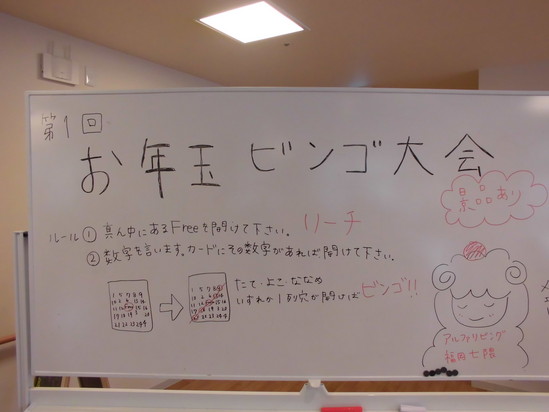 第1回
お年玉 ビンゴ大会
景品あり
ルール ① 真ん中にあるFreeを開けて下さい。 リーチ
② 数字を言います。カードにその数字があれば開けて下さい。
たて・よこ・ななめ
いずれか1列穴が開けば ビンゴ!!
アルファリビング
福岡七隈